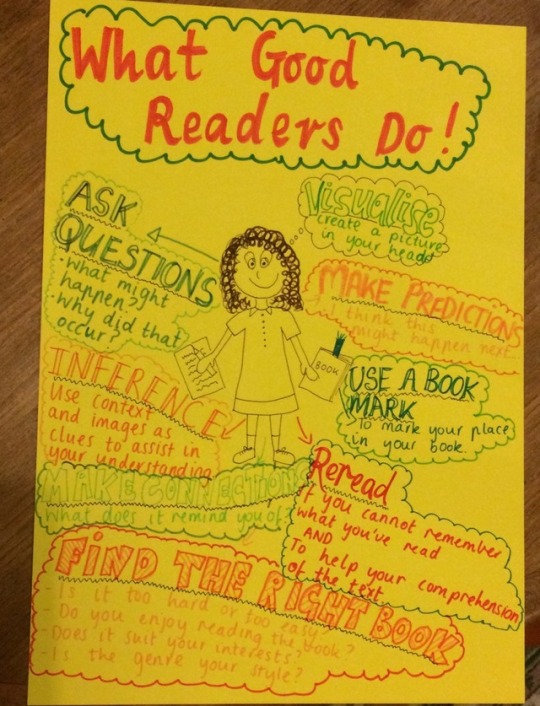 What Good
Readers Do!
ASK
QUESTIONS
· What might
happen?
· Why did that
occur?
Visualise
create a picture
in your heads
MAKE PREDICTIONS
I think this
might happen next...
BOOK
USE A BOOK
MARK
To mark your place
in your book.
INFERENCE
Use context
and images as
clues to assist in
your understanding
MAKE CONNECTIONS
What does it remind you of?
Reread
If you cannot remember
what you've read
AND
To help your comprehension
of the text
FIND THE RIGHT BOOK
- Is it too hard or too easy
- Do you enjoy reading the book?
- Does it suit your interests?
- Is the genre your style?